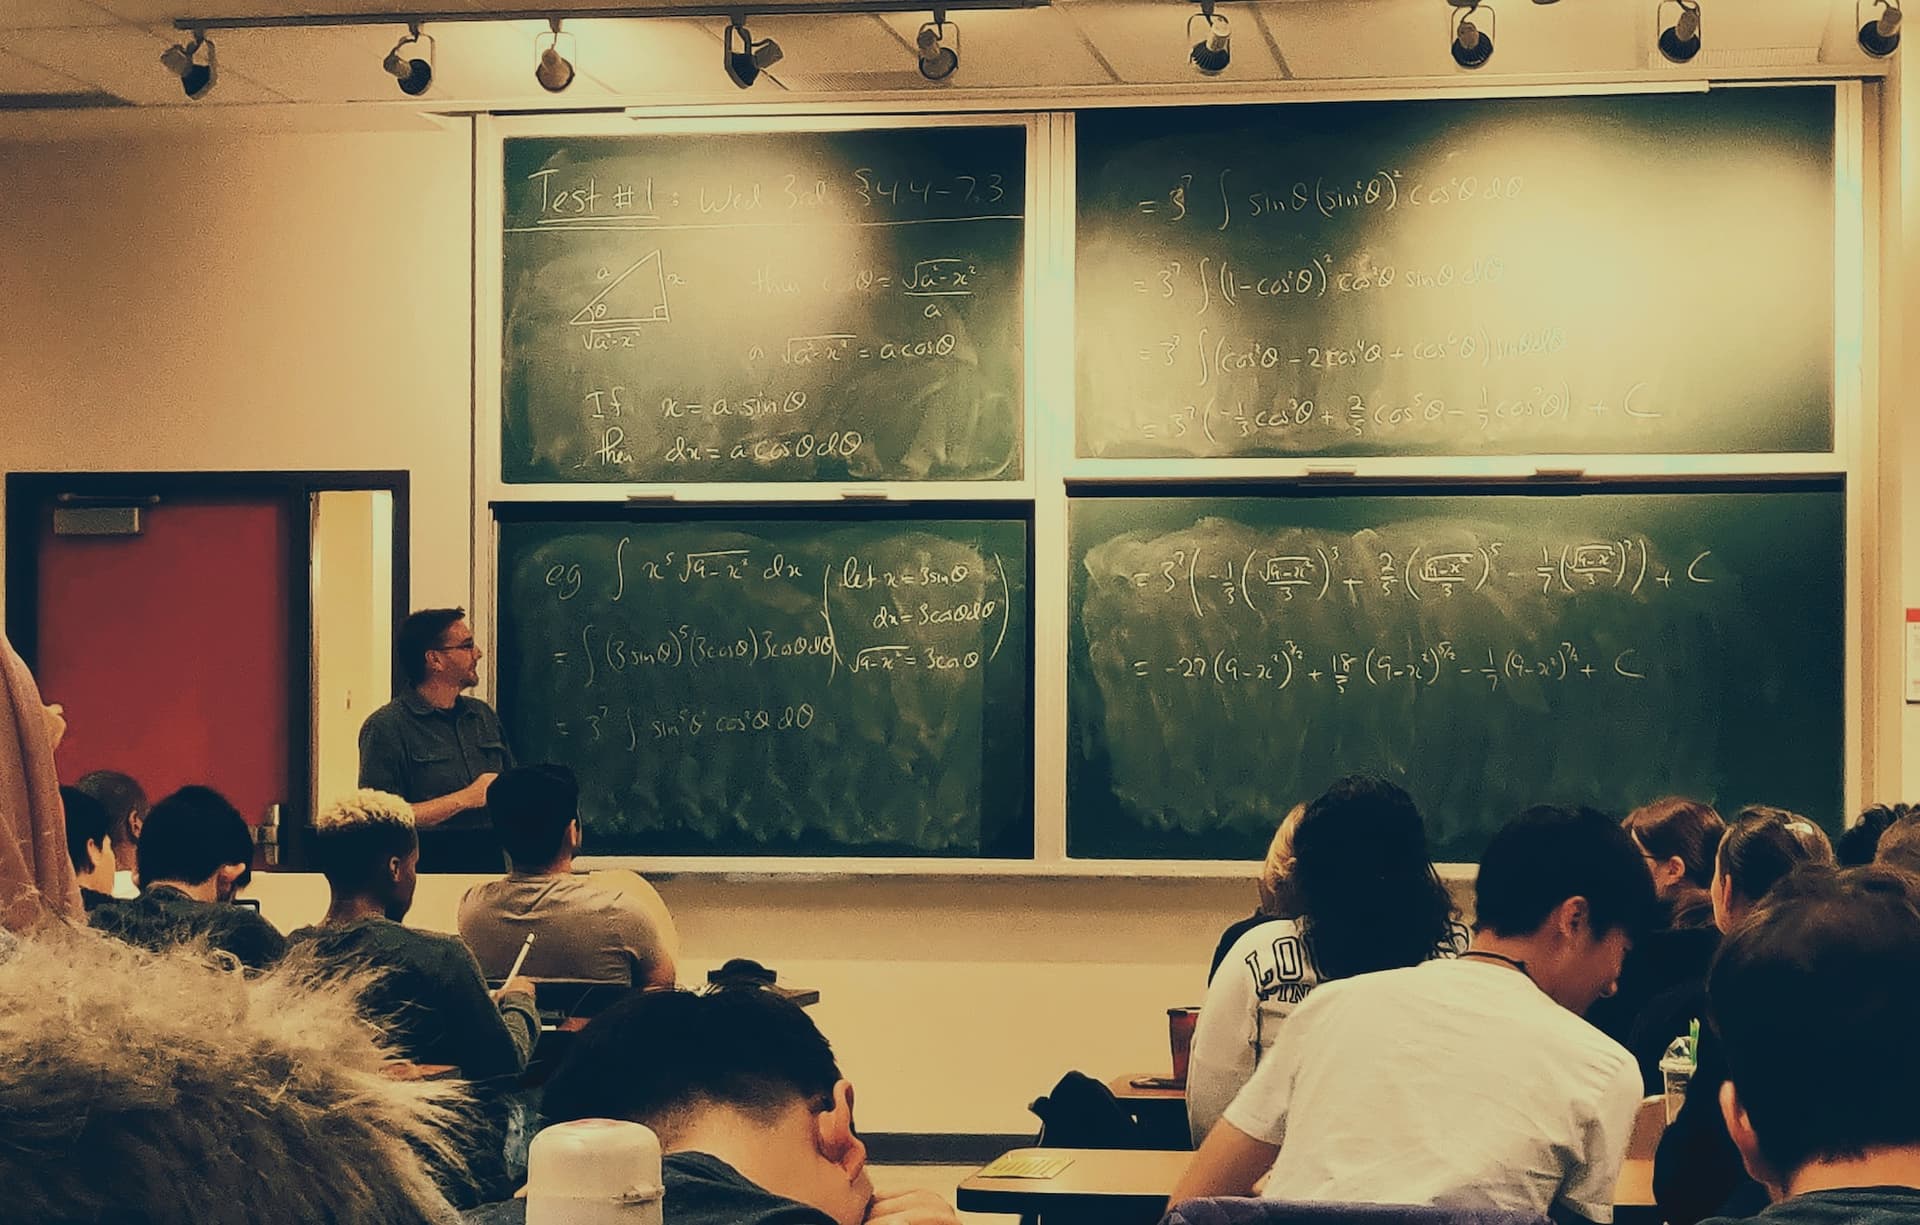 Test #1: Wed 3rd §4.4-7.3
a
x
θ
√a²-x²
then cosθ = √a²-x² / a
or √a²-x² = a cosθ
If x = a sinθ
then dx = a cosθ dθ
eg ∫ x⁵ √9-x² dx (let x = 3 sinθ
dx = 3cosθdθ
= ∫ (3 sinθ)⁵ (3cosθ) 3cosθdθ
√9-x² = 3cosθ)
= 3⁷ ∫ sin⁵θ cos²θ dθ
= 3⁷ ∫ sinθ (sin²θ)² cos²θ dθ
= 3⁷ ∫ (1-cos²θ)² cos²θ sinθ dθ
= 3⁷ ∫ (cos²θ - 2cos⁴θ + cos⁶θ) sinθdθ
= 3⁷ (-1/3 cos³θ + 2/5 cos⁵θ - 1/7 cos⁷θ) + C
= 3⁷ (-1/3 (√9-x² / 3)³ + 2/5 (√9-x² / 3)⁵ - 1/7 (√9-x² / 3)⁷) + C
= -27 (9-x²)^3/2 + 18/5 (9-x²)^5/2 - 1/7 (9-x²)^7/2 + C
LO
PIN